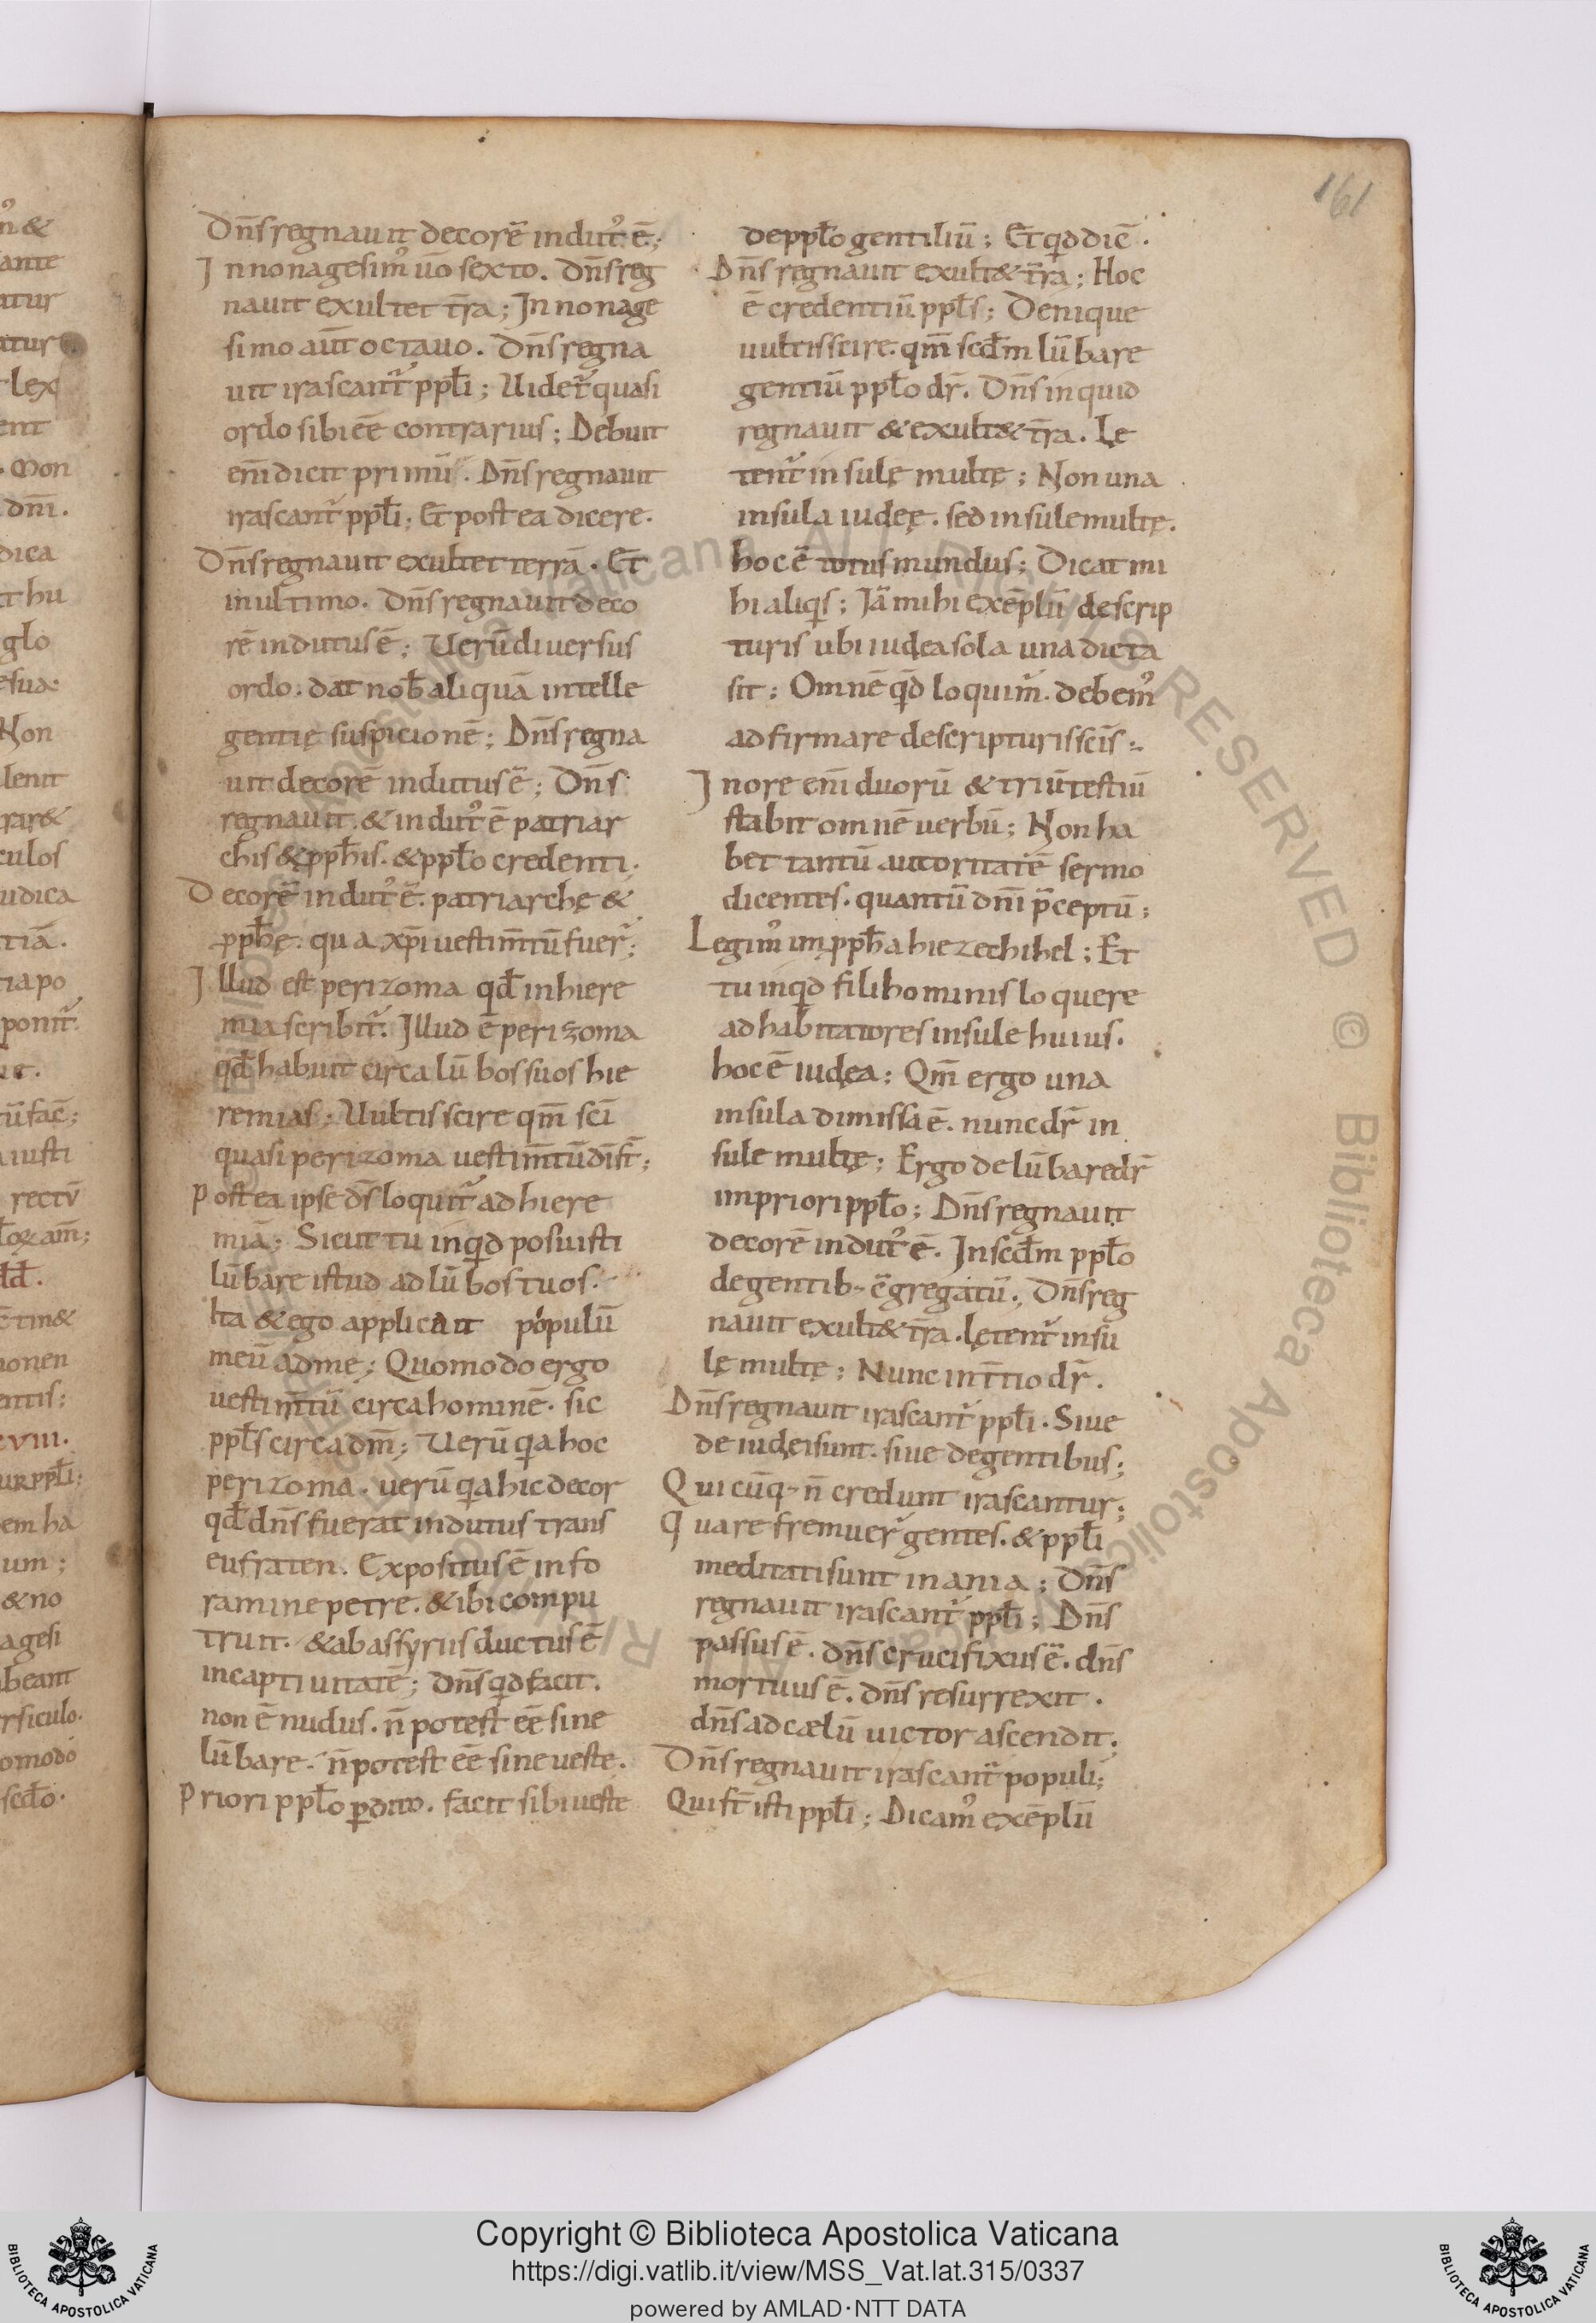 161
Dn̄s regnauit decorē indut᾽ ē;
In nonagesim᾽ ūo sexto. Dn̄s reg
nauit exultet tr̄a; In nonage
simo aūt octauo. Dn̄s regna
uit irascant᾽ ppl̄i; Uidet᾽ quasi
ordo sibi ēē contrarius; Debuit
eni᷆ dicit primū. Dn̄s regnauit
irascant᾽ ppl̄i; Et postea dicere.
Dn̄s regnauit exultet terrā. Et
in ultimo. Dn̄s regnauit deco
rē indutus ē; Uerū diuersus
ordo. dat nob̄ aliquā intelle
gentię suspicionē; Dn̄s regna
uit decorē indutus ē; Dn̄s
regnauit. & indut᾽ ē patriar
chis & ꝓph̄is. & ppl̄o credenti.
Decorē indut᾽ ē. patriarchę &
ꝓph̄ę. qua xp̄i uestim̄tū fuer̄;
Illud est perizoma qd̄ in hiere
mia scribit᾽. Illud ē perizoma
qd̄ habuit circa lūbos suos hie
remias; Uultis scire qm̄ sc̄i
quasi perizoma uestim̄tū dī st̄;
Postea ipse d̄s loquit᾽ ad hiere
miā; Sicut tu inqd posuisti
lūbare istud ad lūbos tuos.
Ita & ego applicaui populū
meū ad me; Quomodo ergo
uestim̄tū circa hominē. sic
ppl̄s circa dm̄; Uerū qa hoc
perizoma. uerū qa hic decor
qd̄ dn̄s fuerat indutus trans
eufraten. Expositus ē in fo
ramine petre. & ibi compu
truit. & ab assyriis ductus ē
in captiuitatē; Dn̄s qd facit.
non ē nudus. n̄ potest ēē sine
lūbare. n̄ potest ēē sine ueste.
Priori ppl̄o ꝑdito. facit sibi uestē
de ppl̄o gentiliū; Et qd dic̄.
Dn̄s regnauit exult& tr̄a; Hoc
ē credentiū ppl̄s; Denique
uultis scire. qm̄ scd̄m lūbare
gentiū ppl̄o dr̄. Dn̄s inquid
regnauit & exult& tr̄a. Lę
tent᾽ insulę multę; Non una
insula iudeę. sed insule multę.
hoc ē totus mundus; Dicat mi
hi aliqs; Da mihi exēplū de scrip
turis ubi iudęa sola una dicta
sit; Omnē qd̄ loquim᾽. debem᾽
adfirmare de scripturis scīs;
In ore eni᷆ duorū & triū testiū
stabit omnē uerbū; Non ha
bet tantū autoritatē sermo
dicentes. quantū dn̄i p̄ceptū;
Legim᾽ in ꝓph̄a hiezechihel; Et
tu inqd fili hominis loquere
ad habitatores insule huius.
hoc ē iudęa; Qm̄ ergo una
insula dimissa ē. nunc dr̄ in
sule multę; Ergo de lūbare dr̄
in priori ppl̄o; Dn̄s regnauit
decorē indut᾽ ē. In scd̄m ppl̄o
de gentib; c̄gregatū; Dn̄s reg
nauit exult& tr̄a. lętent᾽ insu
lę multę; Nunc in t̄tio dr̄.
Dn̄s regnauit irascant᾽ ppl̄i. Siue
de iudęi sunt. siue de gentibus;
Qui cūq; n̄ credunt irascantur;
Quare fremuer̄ gentes. & ppl̄i
meditati sunt inania; Dn̄s
regnauit irascant᾽ ppl̄i; Dn̄s
passus ē. dn̄s crucifixus ē. dn̄s
mortuus ē. dn̄s resurrexit.
dn̄s ad cælū uictor ascendit;
Dn̄s regnauit irascant᾽ populi;
Qui st̄ isti ppl̄i; Dicam᾽ exēplū
Copyright © Biblioteca Apostolica Vaticana
https://digi.vatlib.it/view/MSS_Vat.lat.315/0337
powered by AMLAD·NTT DATA